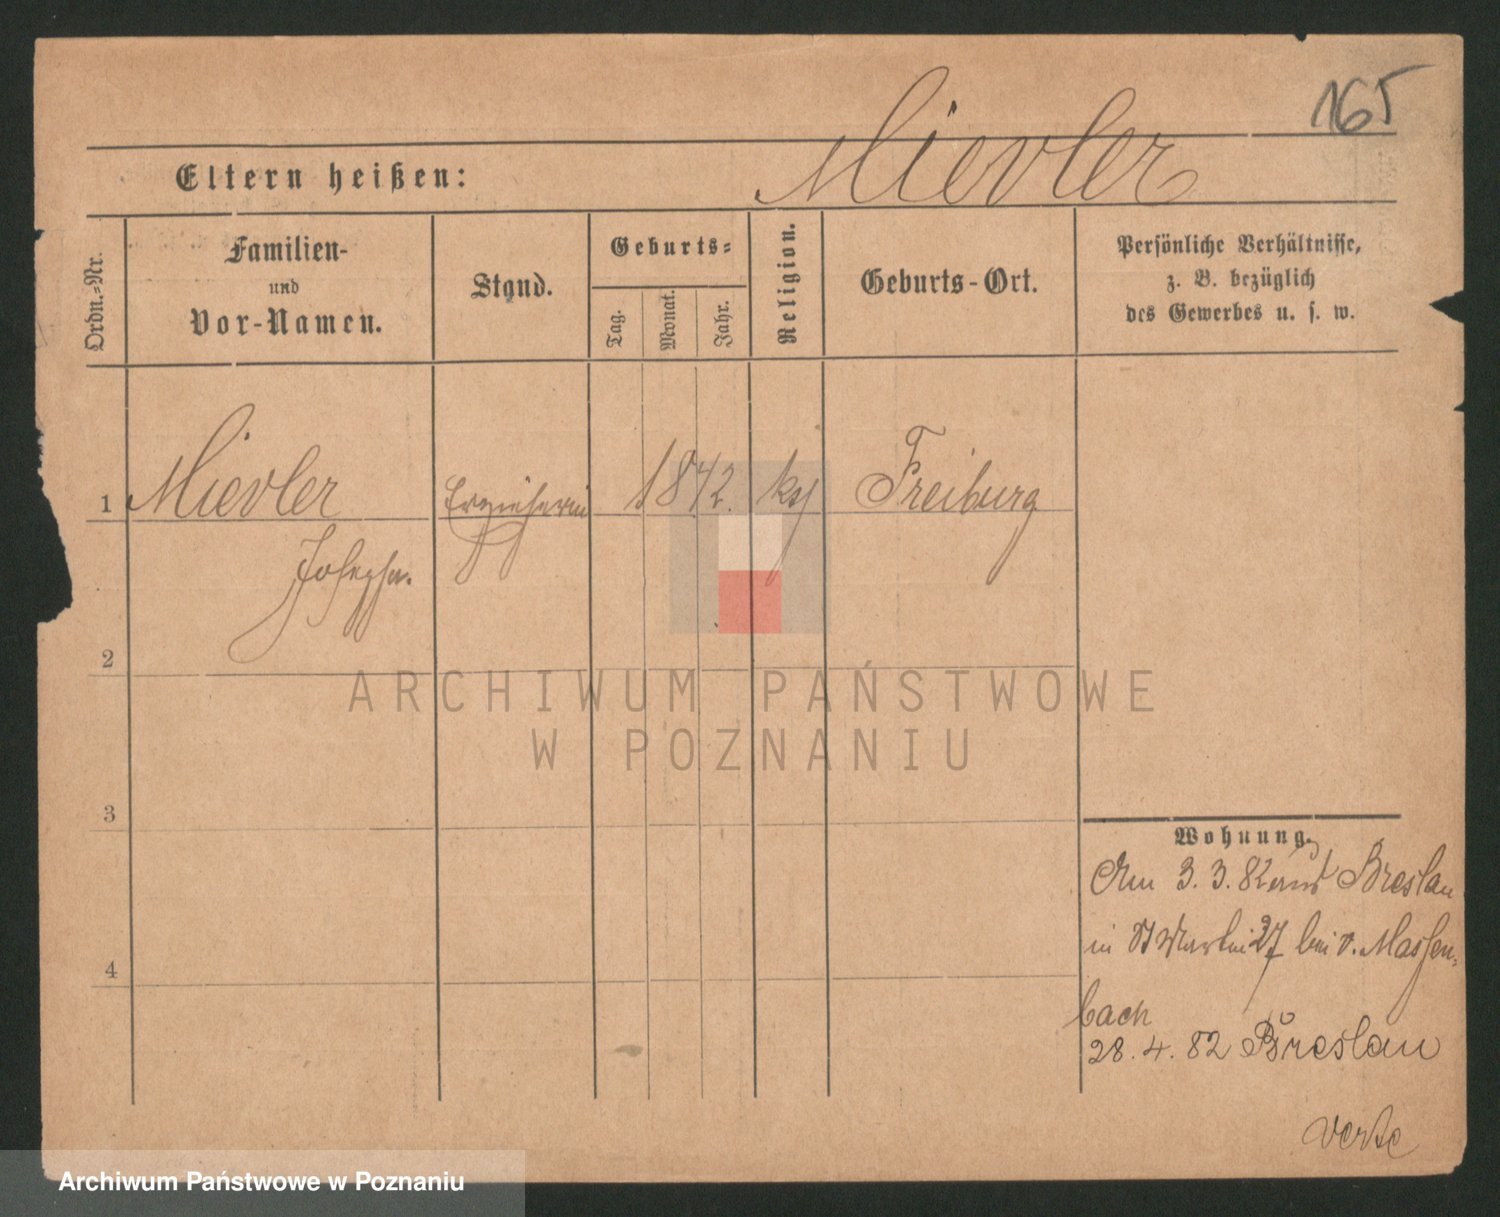 165
Mievler
Eltern heißen:
Ordn.-Nr.
Familien-
und
Vor-Namen.
Stand.
Geburts-
Tag.
Monat.
Jahr.
Religion.
Geburts-Ort.
Persönliche Verhältnisse,
z. B. bezüglich
des Gewerbes u. s. w.
1 Mievler Erzieherin 1842. Freiburg
Josepha.
2
ARCHIWUM PAŃSTWOWE
W POZNANIU
3
4
Wohnung.
Am 3. 3. 82 aus Breslau
in St Martin 27 bei v. Massen-
bach
28. 4. 82 Breslau
verte
Archiwum Państwowe w Poznaniu